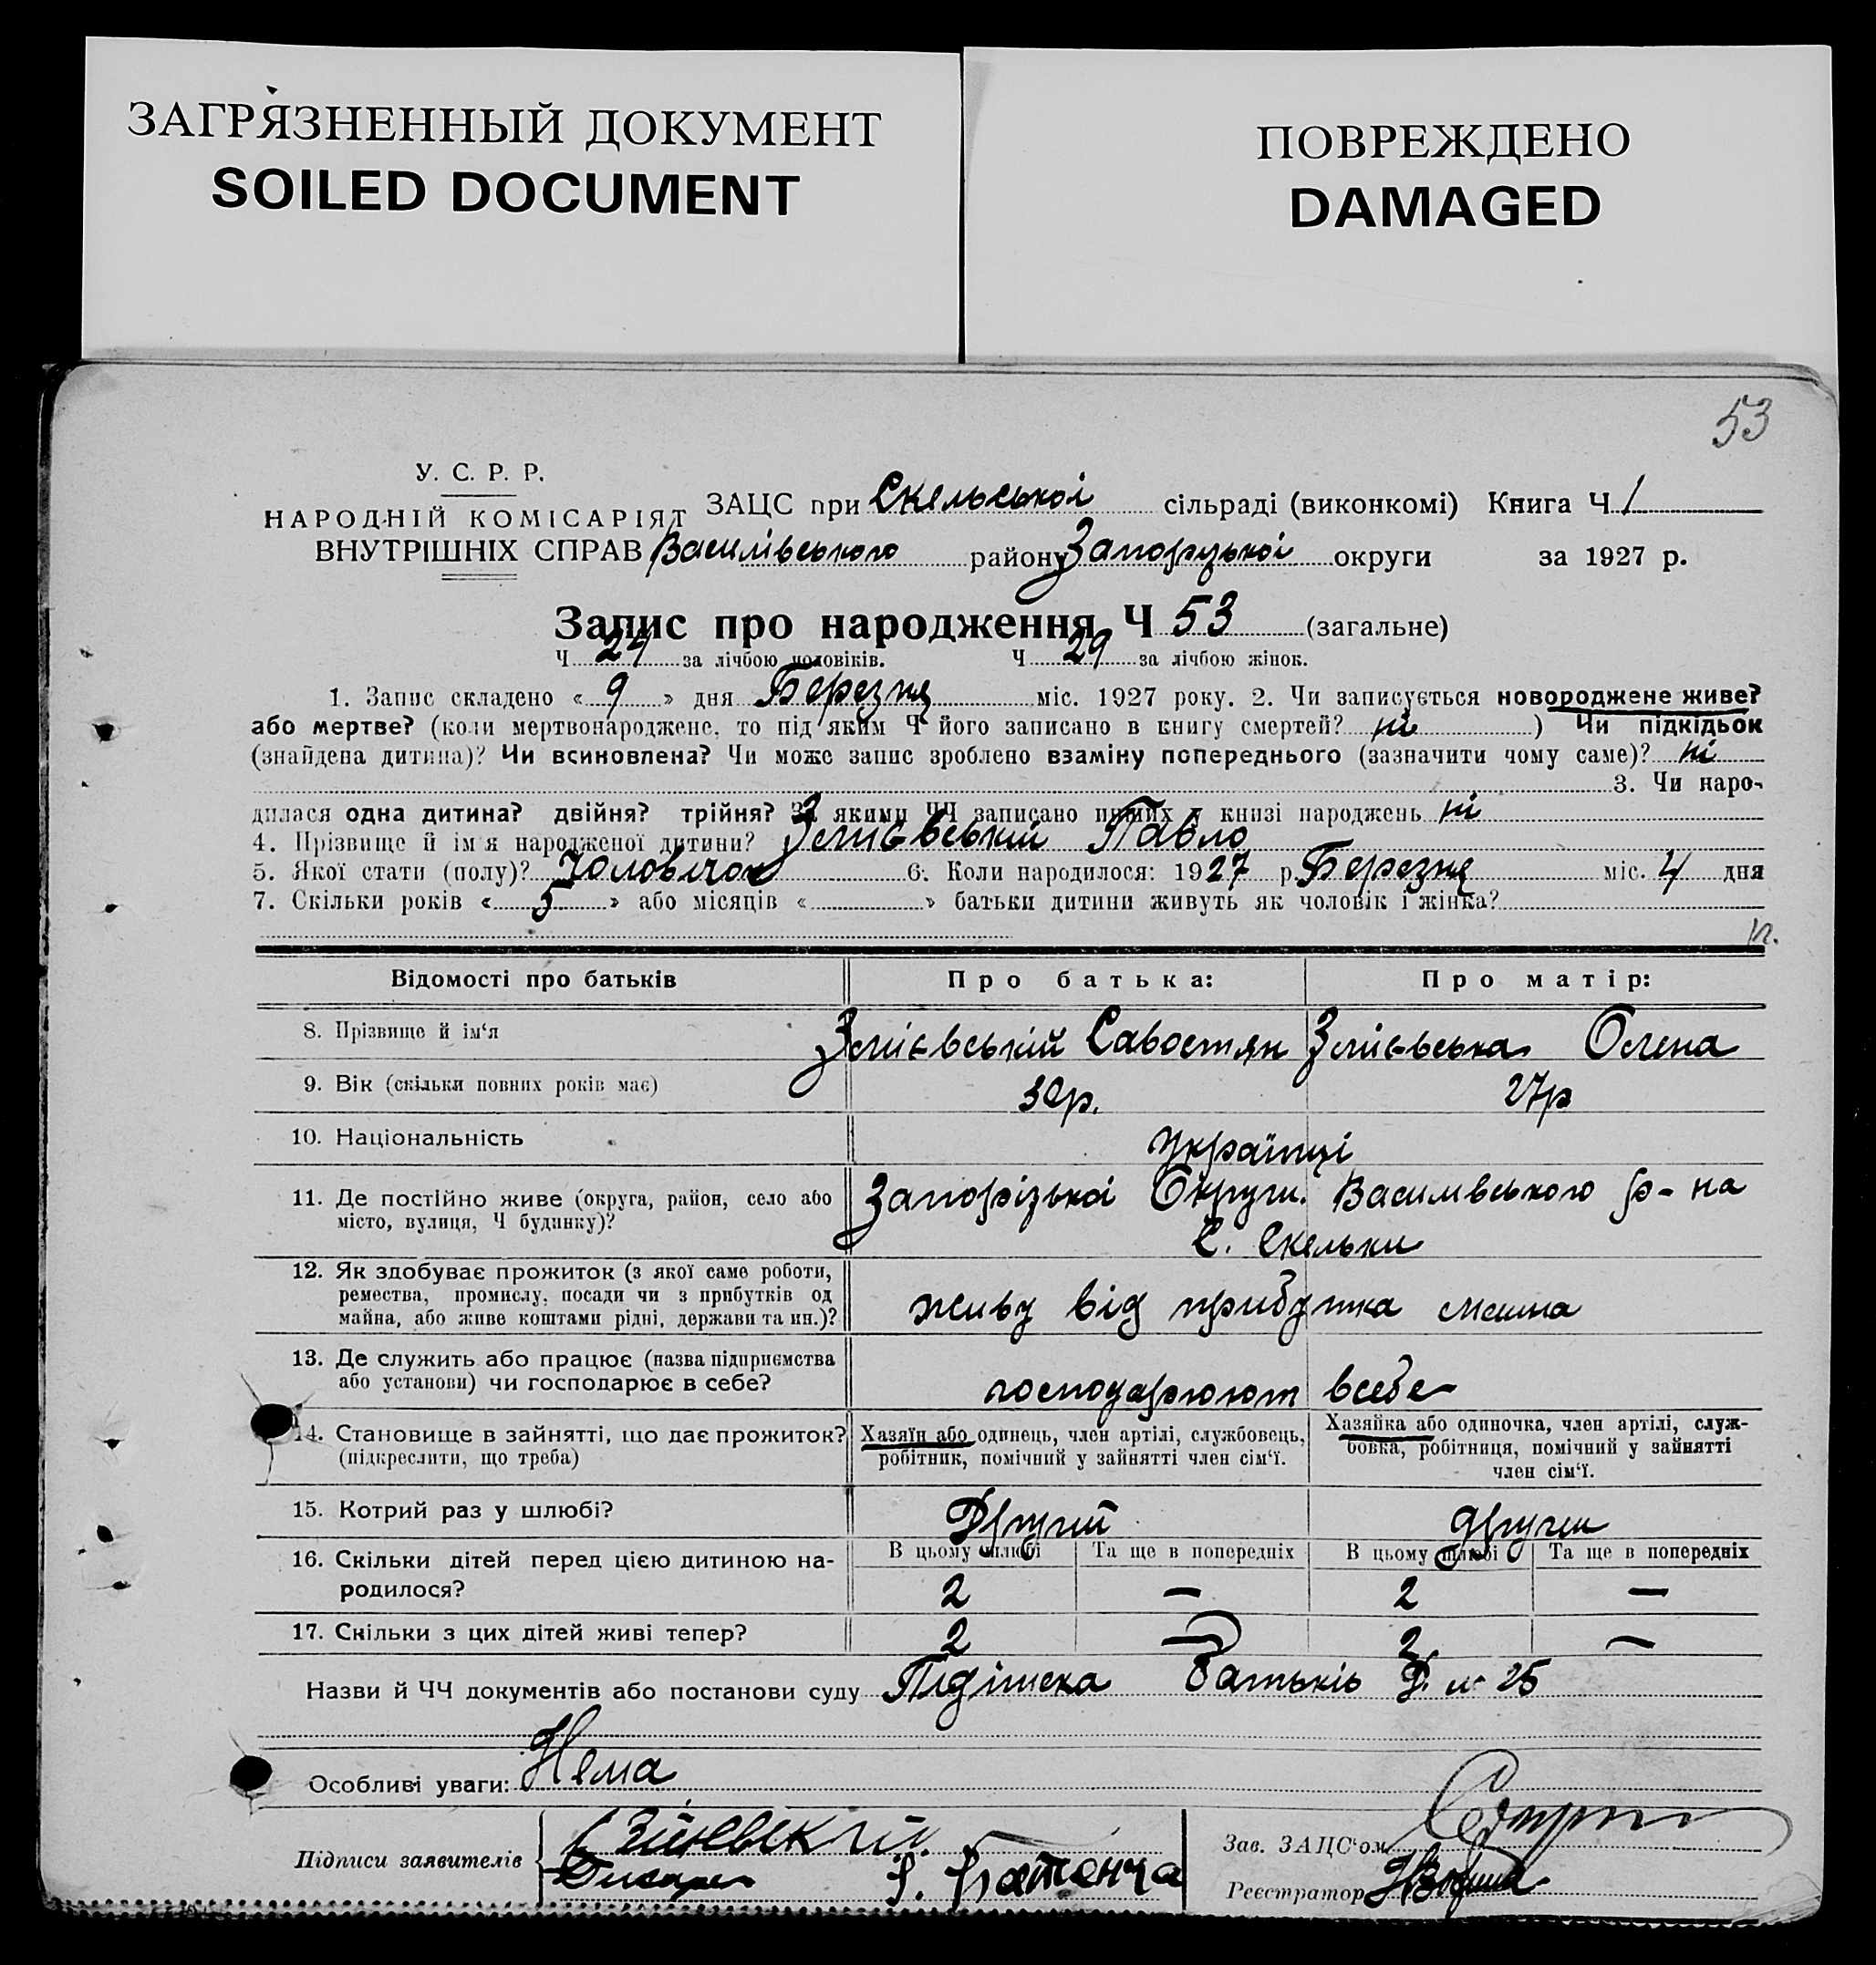 ЗАГРЯЗНЕННЫЙ ДОКУМЕНТ
SOILED DOCUMENT
ПОВРЕЖДЕНО
DAMAGED
53
У. С. Р. Р.
НАРОДНІЙ КОМІСАРІЯТ
ВНУТРІШНІХ СПРАВ
ЗАЦС при Скельської сільраді (виконкомі) Книга Ч 1
Василівського району Запорізької округи за 1927 р.
Запис про народження Ч 53 (загальне)
Ч 24 за лічбою чоловіків. Ч 29 за лічбою жінок.
1. Запис складено « 9 » дня Березня міс. 1927 року. 2. Чи записується новороджене живе?
або мертве? (коли мертвонароджене, то під яким Ч його записано в книгу смертей? ні ) Чи підкідьок
(знайдена дитина)? Чи всиновлена? Чи може запис зроблено взаміну попереднього (зазначити чому саме)? ні
3. Чи наро-
дилася одна дитина? двійня? трійня? За якими ЧЧ записано инших у книзі народжень ні
4. Прізвище й ім'я народженої дитини? Змієвський Павло
5. Якої стати (полу)? Чоловічої 6. Коли народилося: 1927 р. Березня міс. 4 дня
7. Скільки років « 5 » або місяців « » батьки дитини живуть як чоловік і жінка?
Відомості про батьків Про батька: Про матір:
8. Прізвище й ім'я Змієвський Савостян Змієвська Олена
9. Вік (скільки повних років має) 30р. 27р
10. Національність Українці
11. Де постійно живе (округа, район, село або Запорізької Округи. Василівського р-на
місто, вулиця, Ч будинку)? С. Скельки
12. Як здобуває прожиток (з якої саме роботи,
ремества, промислу, посади чи з прибутків од
майна, або живе коштами рідні, держави та ин.)? живу від прибутка
13. Де служить або працює (назва підприємства
або установи) чи господарює в себе? господарюют всебе
14. Становище в зайнятті, що дає прожиток?
(підкреслити, що треба)
Хазяїн або одинець, член артілі, службовець,
робітник, помічний у зайнятті член сім'ї.
Хазяйка або одиночка, член артілі, служ-
бовка, робітниця, помічний у зайнятті
член сім'ї.
15. Котрий раз у шлюбі? Другий други
16. Скільки дітей перед цією дитиною на-
родилося?
В цьому шлюбі Та ще в попередніх В цьому шлюбі Та ще в попередніх
2 — 2 —
17. Скільки з цих дітей живі тепер? 2 — 2 —
Назви й ЧЧ документів або постанови суду Підписка Батьків 25
Особливі уваги: Нема
Підписи заявителів
Зав. ЗАЦС'ом
Реєстратор